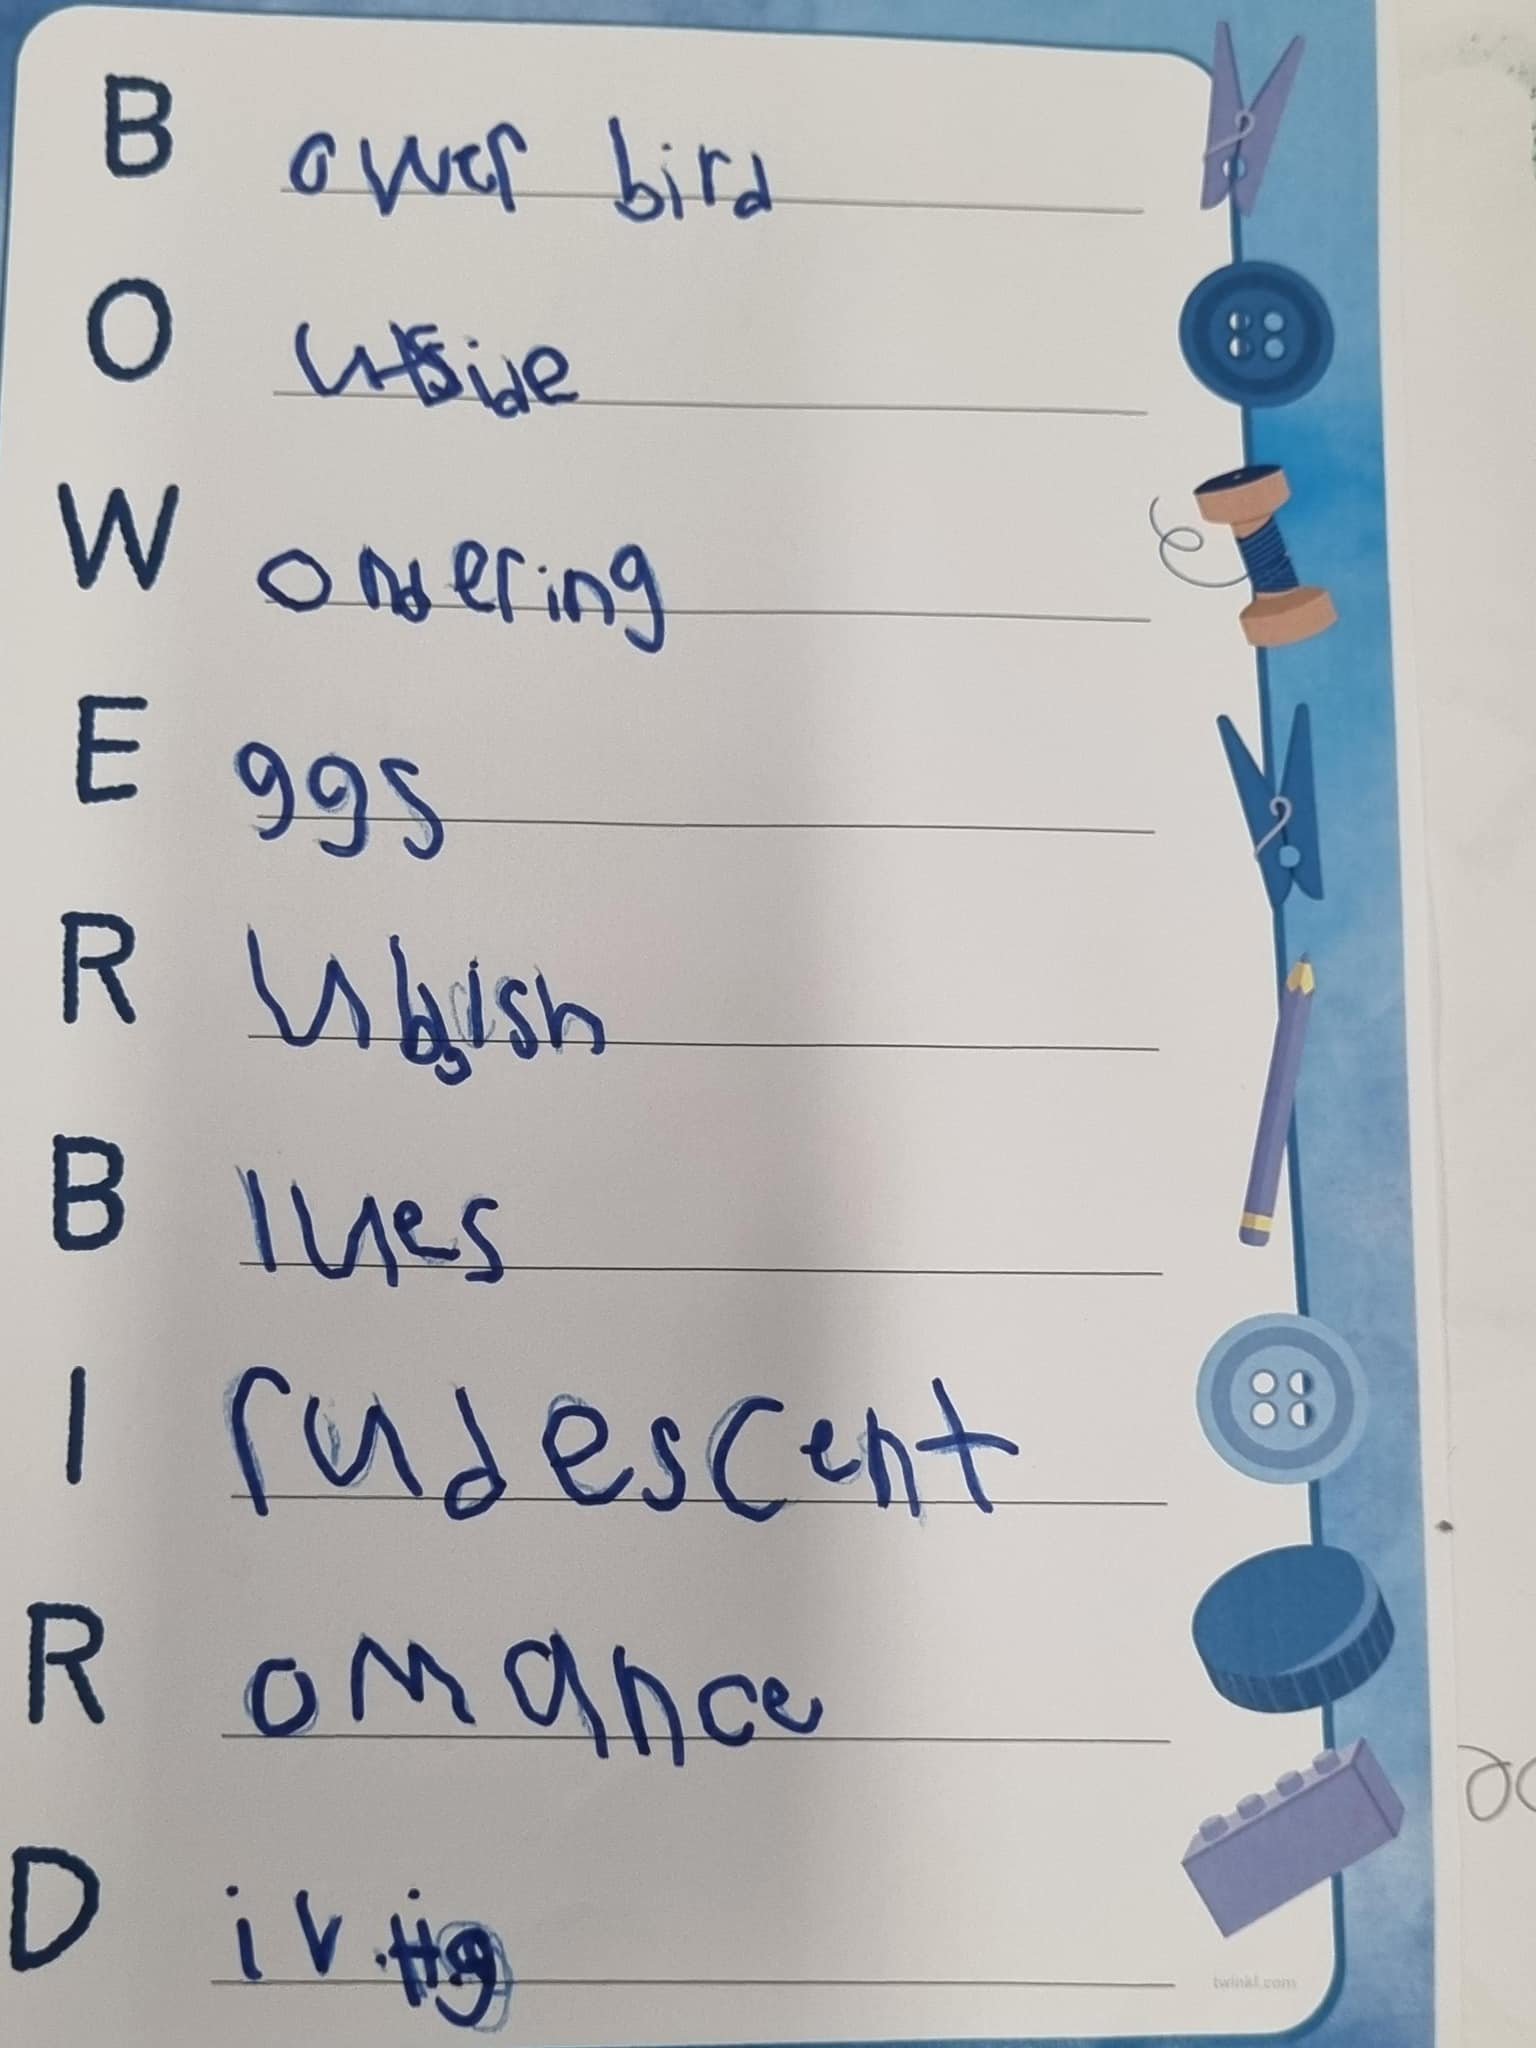 B ower bird
O utside
W ondering
E ggs
R ubbish
B lues
I rudescent
R omance
D
twinkl.com